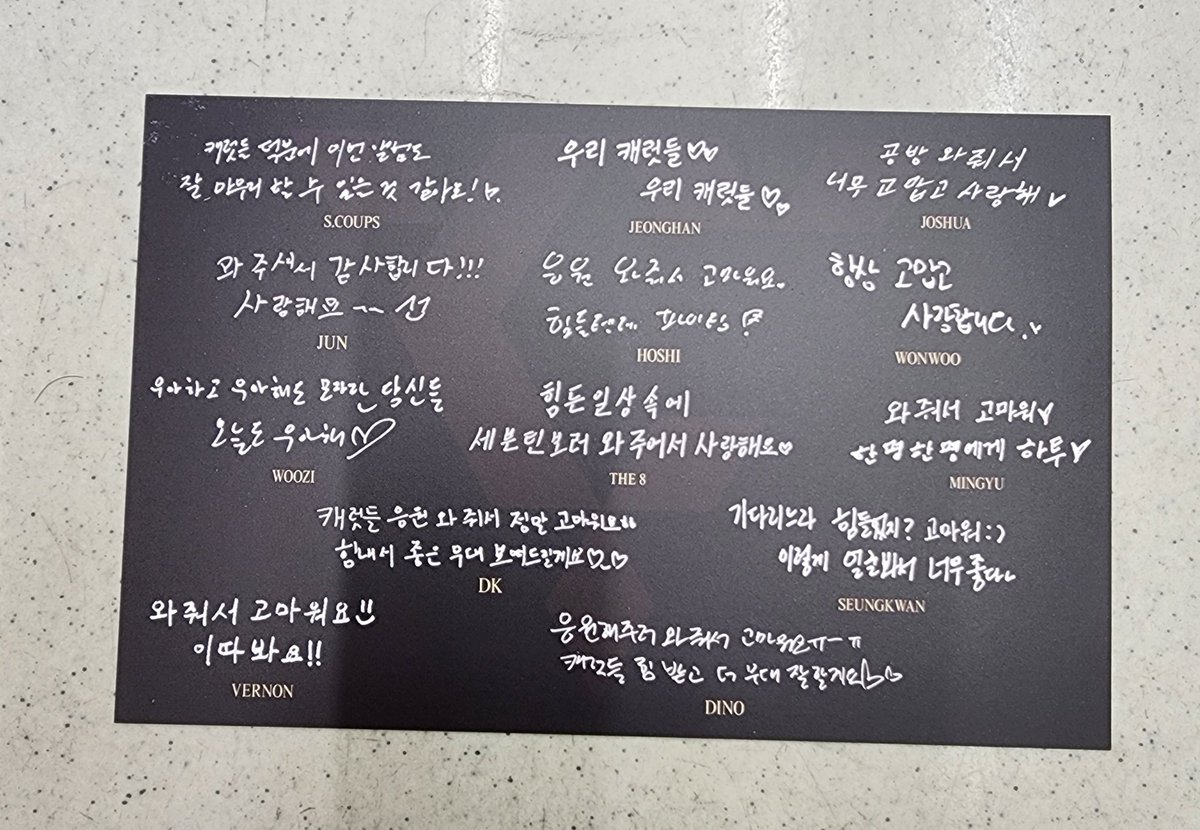 캐럿들 덕분에 이번 앨범도
잘 마무리 할 수 있는 것 같아요!♡
S.COUPS
우리 캐럿들♡♡
우리 캐럿들♡♡
JEONGHAN
공방 와줘서
너무 고맙고 사랑해♡
JOSHUA
와주셔서 감사합니다!!!
사랑해요~~
JUN
응원 와줘서 고마워요.
힘들텐데 파이팅
HOSHI
항상 고맙고
사랑합니다.♡
WONWOO
우아하고 우아해도 모자란 당신들
오늘도 우아해♡
WOOZI
힘든 일상 속에
세븐틴 보러 와주어서 사랑해요♡
THE 8
와줘서 고마워♡
한명 한명에게 하투♡
MINGYU
캐럿들 응원 와줘서 정말 고마워요!!
힘내서 좋은 무대 보여드릴게요♡♡
DK
기다리느라 힘들었지? 고마워:)
이렇게 얼굴봐서 너무 좋다~
SEUNGKWAN
와줘서 고마워요!!
이따 봐요!!
VERNON
응원해주러 와줘서 고마워요ㅠ-ㅠ
캐럿들 힘 받고 더 무대 잘할게요
DINO